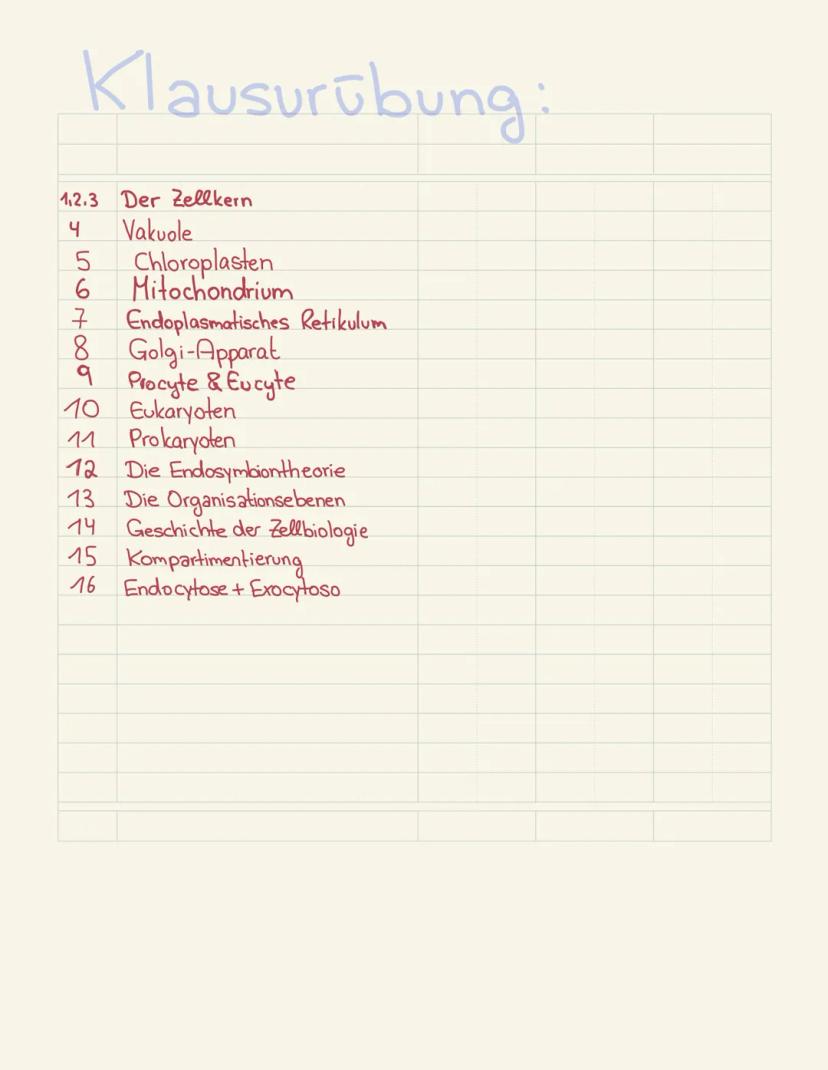 Klausurübung:
1,2.3 Der Zellkern
4 Vakuole
5 Chloroplasten
6 Mitochondrium
7 Endoplasmatisches Retikulum
8 Golgi-Apparat
9 Procyte & Eucyte
10 Eukaryoten
11 Prokaryoten
12 Die Endosymbiontheorie
13 Die Organisationsebenen
14 Geschichte der Zellbiologie
15 Kompartimentierung
16 Endocytose + Exocytoso